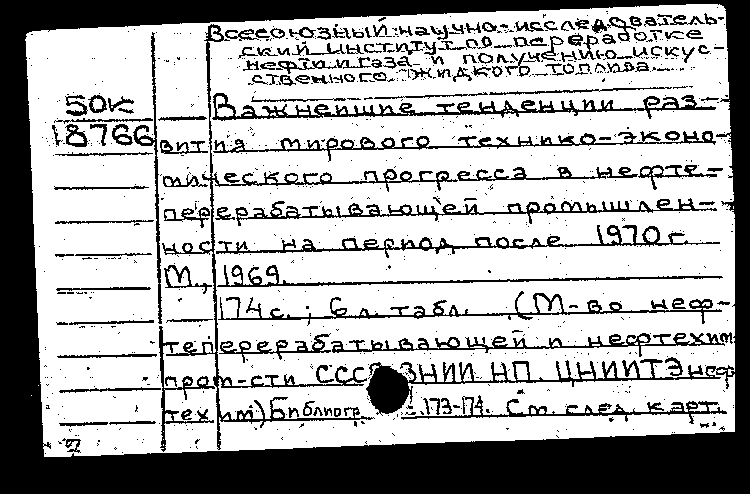 Всесоюзный научно-исследователь-
ский институт по переработке
нефти и газа и получению искус-
ственного жидкого топлива.
50к Важнейшие тенденции раз-
18766 вития мирового технико-эконо-
мического прогресса в нефте-
перерабатывающей промышлен-
ности на период после 1970 г.
М., 1969.
174 с.; 6 л. табл. (М-во неф-
теперерабатывающей и нефтехим
пром-сти СССР ВНИИ НП. ЦНИИТЭнеф
тех им) Библиогр. с.173-174. См. след. карт.